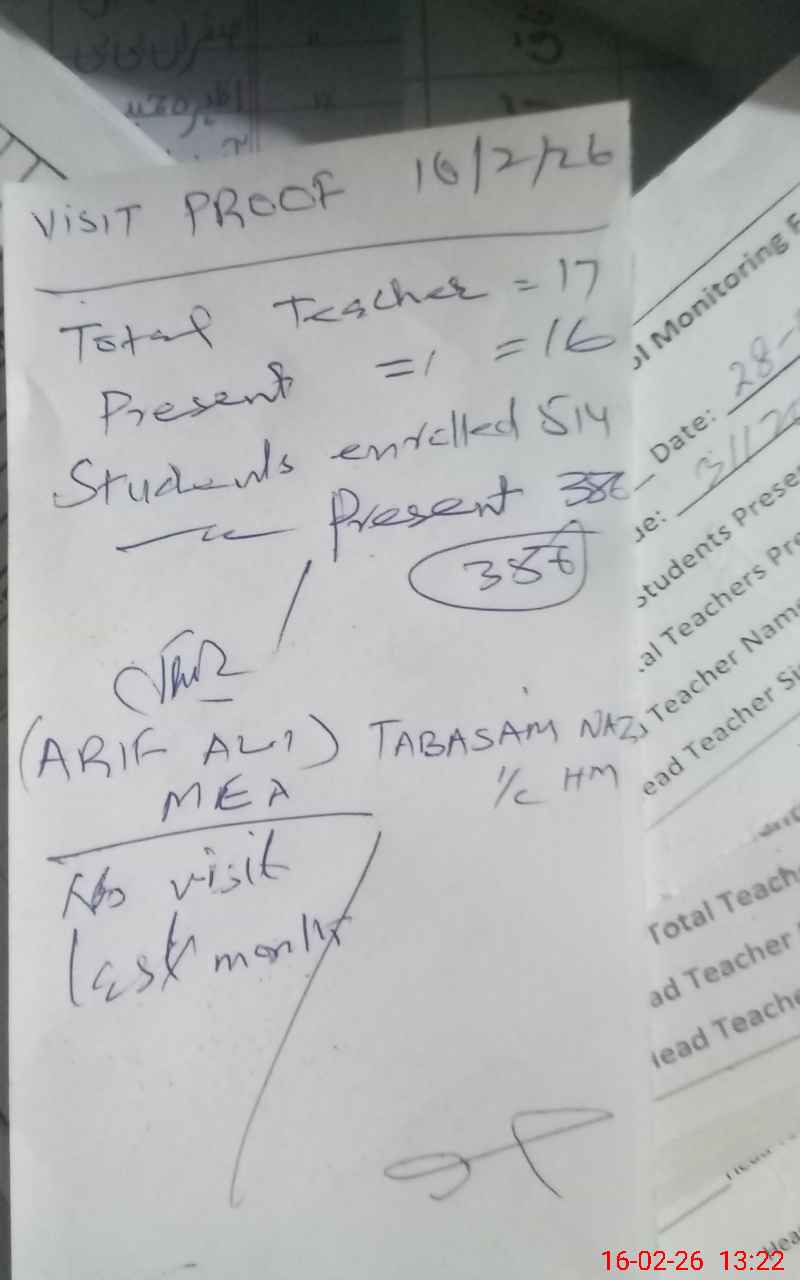 VISIT PROOF 16/2/26
Total Teacher = 17
Present = 1 = 16
Students enrolled 514
Present 386
386
(ARIF ALI) TABASAM NAZ
MEA I/C HM
No visit
last month
ol Monitoring F
Date: 28-
ue: 31120
Students Prese
al Teachers Pre
Teacher Name
ead Teacher Si
Total Teach
ad Teacher
Head Teache
Hea
16-02-26 13:22